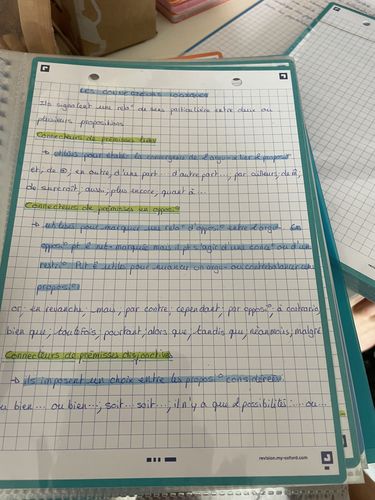 LES CONNECTEURS LOGIQUES
Ils signalent une relaº de sens particulière entre deux ou
plusieurs propositions.
Connecteurs de prémisses liées
↳ utilisés pour établir la convergence de l'argu lier 2 propos
et, de ⊕, en outre, d'une part... d'autre part..., par ailleurs, de là,
de surcroît, aussi, plus encore, quant à...
Connecteurs de prémisses en opposº
↳ utilisés pour marquer une relaº d'opposº entre 2 argu.
opposº pt ê net marquée mais il pt s'agir d'une concº ou d'un
restrº. Pvt ê utiles pour nuancer un argu ou contrebalancer une
proposiº.
or, en revanche, mais, par contre, cependant, par opposiº, à contrario
bien que, toutefois, pourtant, alors que, tandis que, néanmoins, malgré
Connecteurs de prémisses disjonctives
↳ ils imposent un choix entre les proposº considérées.
ou bien... ou bien..., soit... soit..., il n'y a que 2 possibilités :... ou...
revision.my-oxford.com